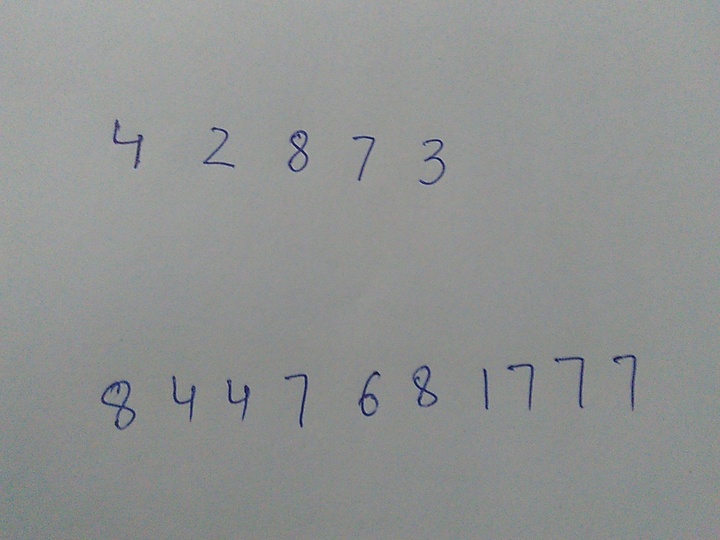 4 2 8 7 3
8 4 4 7 6 8 1 7 7 7